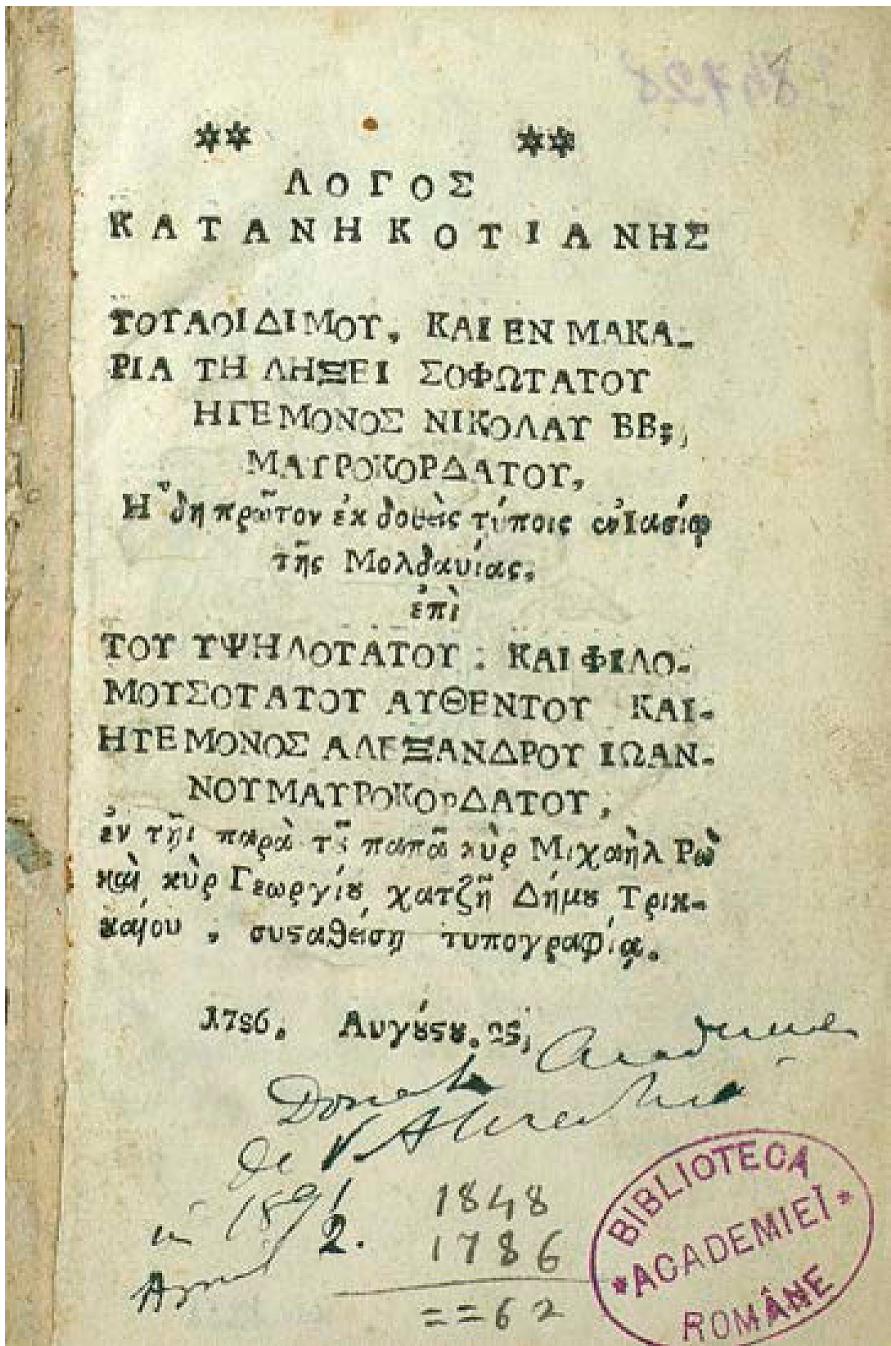 ΛΟΓΟΣ
ΚΑΤΑΝΗΚΟΤΙΑΝΗΣ
ΤΟΥΑΟΙΔΙΜΟΥ, ΚΑΙ ΕΝ ΜΑΚΑ-
ΡΙΑ ΤΗ ΛΗΞΕΙ ΣΟΦΩΤΑΤΟΥ
ΗΓΕΜΟΝΟΣ ΝΙΚΟΛΑΥ ΒΒ;,
ΜΑΥΡΟΚΟΡΔΑΤΟΥ,
Ἤδη πρῶτον ἐκ δοθεὶς τύποις ἐν Ιασίῳ
τῆς Μολδαυίας.
ἐπὶ
ΤΟΥ ΥΨΗΛΟΤΑΤΟΥ : ΚΑΙ ΦΙΛΟ-
ΜΟΥΣΟΤΑΤΟΥ ΑΥΘΕΝΤΟΥ ΚΑΙ-
ΗΓΕΜΟΝΟΣ ΑΛΕΞΑΝΔΡΟΥ ΙΩΑΝ-
ΝΟΥ ΜΑΥΡΟΚΟΡΔΑΤΟΥ,
ἐν τῆι παρὰ τȣ͂ παπᾶ κὺρ Μιχαὴλ Ρω
καὶ κὺρ Γεωργίȣ χατζῆ Δήμȣ Τρικ-
καίου, συϛαθείσῃ τυπογραφίᾳ.
1786. Αυγύϛȣ. 25;
de V.
in 1891
2.
1848
1786
==62
BIBLIOTECA
*ACADEMIEĬ*
ROMÂNE